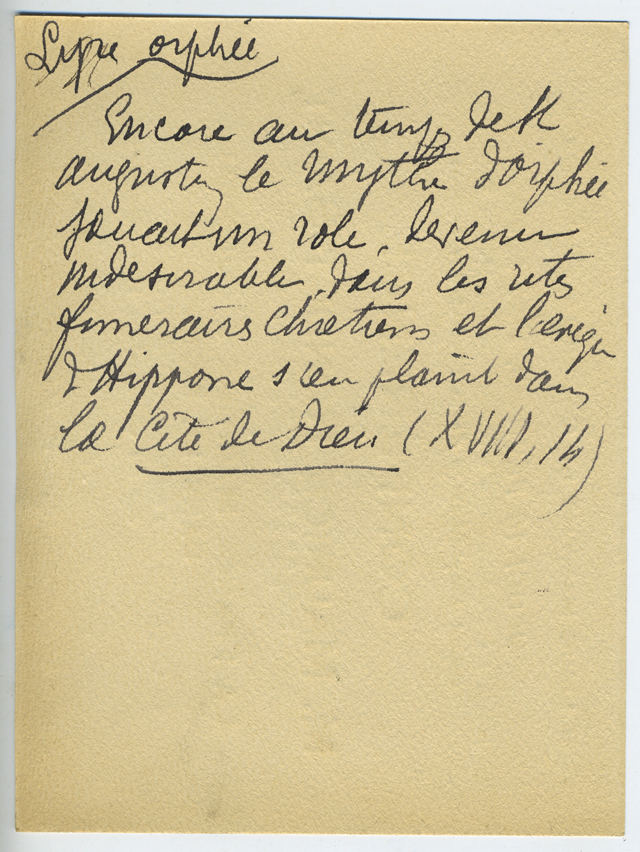 Lyre orphée
Encore au temps de St
augustin, le mythe d'orphée
jouait un role, devenu
indesirable, dans les rites
funeraires Chretiens et l'evêque
d'Hippone s'en plaint dans
la Cité de Dieu (XVIII, 14)